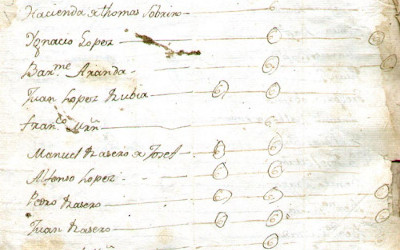 Hacienda de Thomas Sobrin 6
Ygnacio Lopez 6 6
Barme Aranda 6
Juan Lopez Rubia 6 6
Franco 6
Manuel Rasero de Josef 6 6
Alfonso Lopez 6 6
Pedro Rasero 6 6 6
Juan Rasero 6 6 6
6